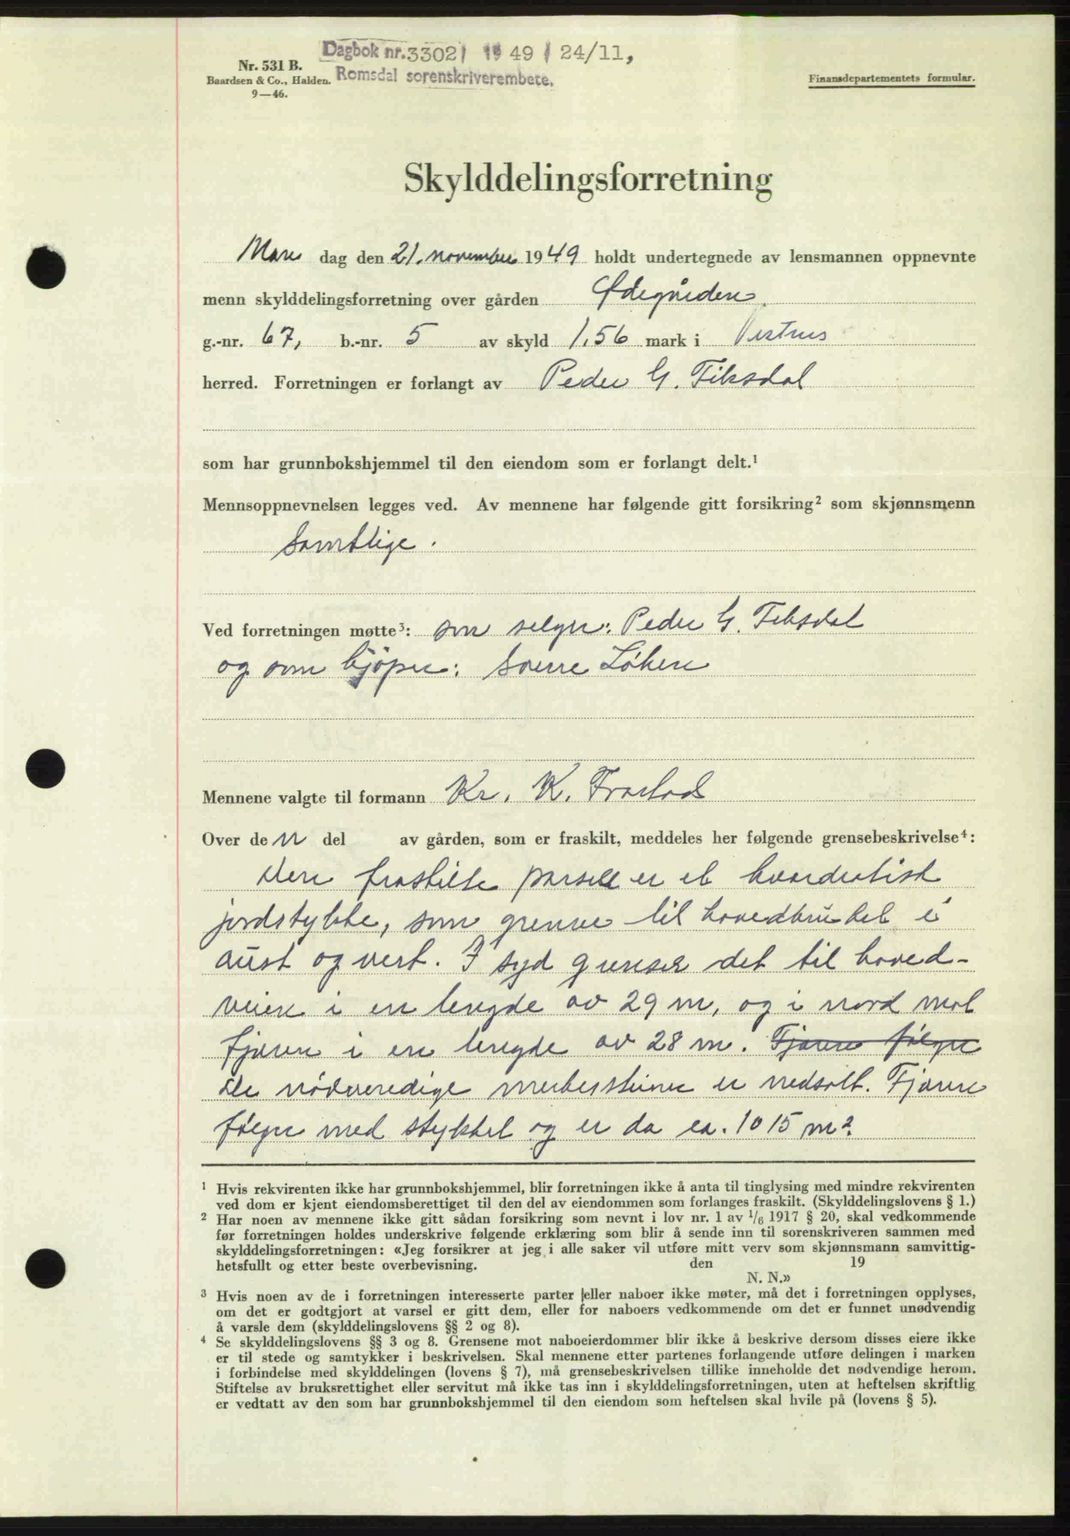 Dagbok nr. 3302 / 1949 / 24/11,
Romsdal sorenskriverembete.
Nr. 531 B.
Baardsen & Co., Halden.
9—46.
Finansdepartementets formular.
Skylddelingsforretning
Mandag den 21. november 1949 holdt undertegnede av lensmannen oppnevnte
menn skylddelingsforretning over gården Ødegården
g.-nr. 67, b.-nr. 5 av skyld 1,56 mark i Vestnes
herred. Forretningen er forlangt av Peder G. Fiksdal
som har grunnbokshjemmel til den eiendom som er forlangt delt.¹
Mennsoppnevnelsen legges ved. Av mennene har følgende gitt forsikring² som skjønnsmenn
Samtlige.
Ved forretningen møtte³: som selger: Peder G. Fiksdal
og som kjøper: Sverre Løken
Mennene valgte til formann Kr. K. Frostad
Over den del av gården, som er fraskilt, meddeles her følgende grensebeskrivelse⁴:
Den fraskilte parsell er et kvadratisk
jordstykke, som grenser til hovedbruket i
aust og vest. I syd grenser det til hoved-
veien i en lengde av 29 m, og i nord mot
fjæren i en lengde av 28 m. Fjæren følger
De nødvendige merkesteiner er nedsatt. Fjæren
følger med stykket og er da ca. 1015 m²
¹ Hvis rekvirenten ikke har grunnbokshjemmel, blir forretningen ikke å anta til tinglysing med mindre rekvirenten
ved dom er kjent eiendomsberettiget til den del av eiendommen som forlanges fraskilt. (Skylddelingslovens § 1.)
² Har noen av mennene ikke gitt sådan forsikring som nevnt i lov nr. 1 av 1/6 1917 § 20, skal vedkommende
før forretningen holdes underskrive følgende erklæring som blir å sende inn til sorenskriveren sammen med
skylddelingsforretningen: «Jeg forsikrer at jeg i alle saker vil utføre mitt verv som skjønnsmann samvittig-
hetsfullt og etter beste overbevisning. den 19
N. N.»
³ Hvis noen av de i forretningen interesserte parter eller naboer ikke møter, må det i forretningen opplyses,
om det er godtgjort at varsel er gitt dem, eller for naboers vedkommende om det er funnet unødvendig
å varsle dem (skylddelingslovens §§ 2 og 8).
⁴ Se skylddelingslovens §§ 3 og 8. Grensene mot naboeierdommer blir ikke å beskrive dersom disses eiere ikke
er til stede og samtykker i beskrivelsen. Skal mennene etter partenes forlangende utføre delingen i marken
i forbindelse med skylddelingen (lovens § 7), må grensebeskrivelsen tillike inneholde det nødvendige herom.
Stiftelse av bruksrettighet eller servitut må ikke tas inn i skylddelingsforretningen, uten at heftelsen skriftlig
er vedtatt av den som har grunnbokshjemmel til den eiendom som heftelsen skal hvile på (lovens § 5).